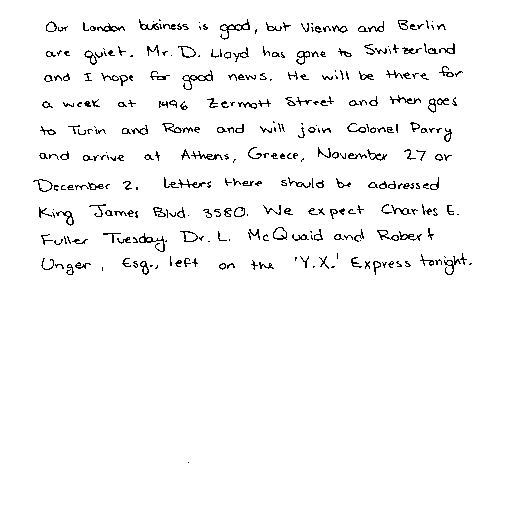 Our London business is good, but Vienna and Berlin
are quiet. Mr. D. Lloyd has gone to Switzerland
and I hope for good news. He will be there for
a week at 1496 Zermott Street and then goes
to Turin and Rome and will join Colonel Parry
and arrive at Athens, Greece, November 27 or
December 2. Letters there should be addressed
King James Blvd. 3580. We expect Charles E.
Fuller Tuesday. Dr. L. McQuaid and Robert
Unger, Esq., left on the 'Y.X.' Express tonight.